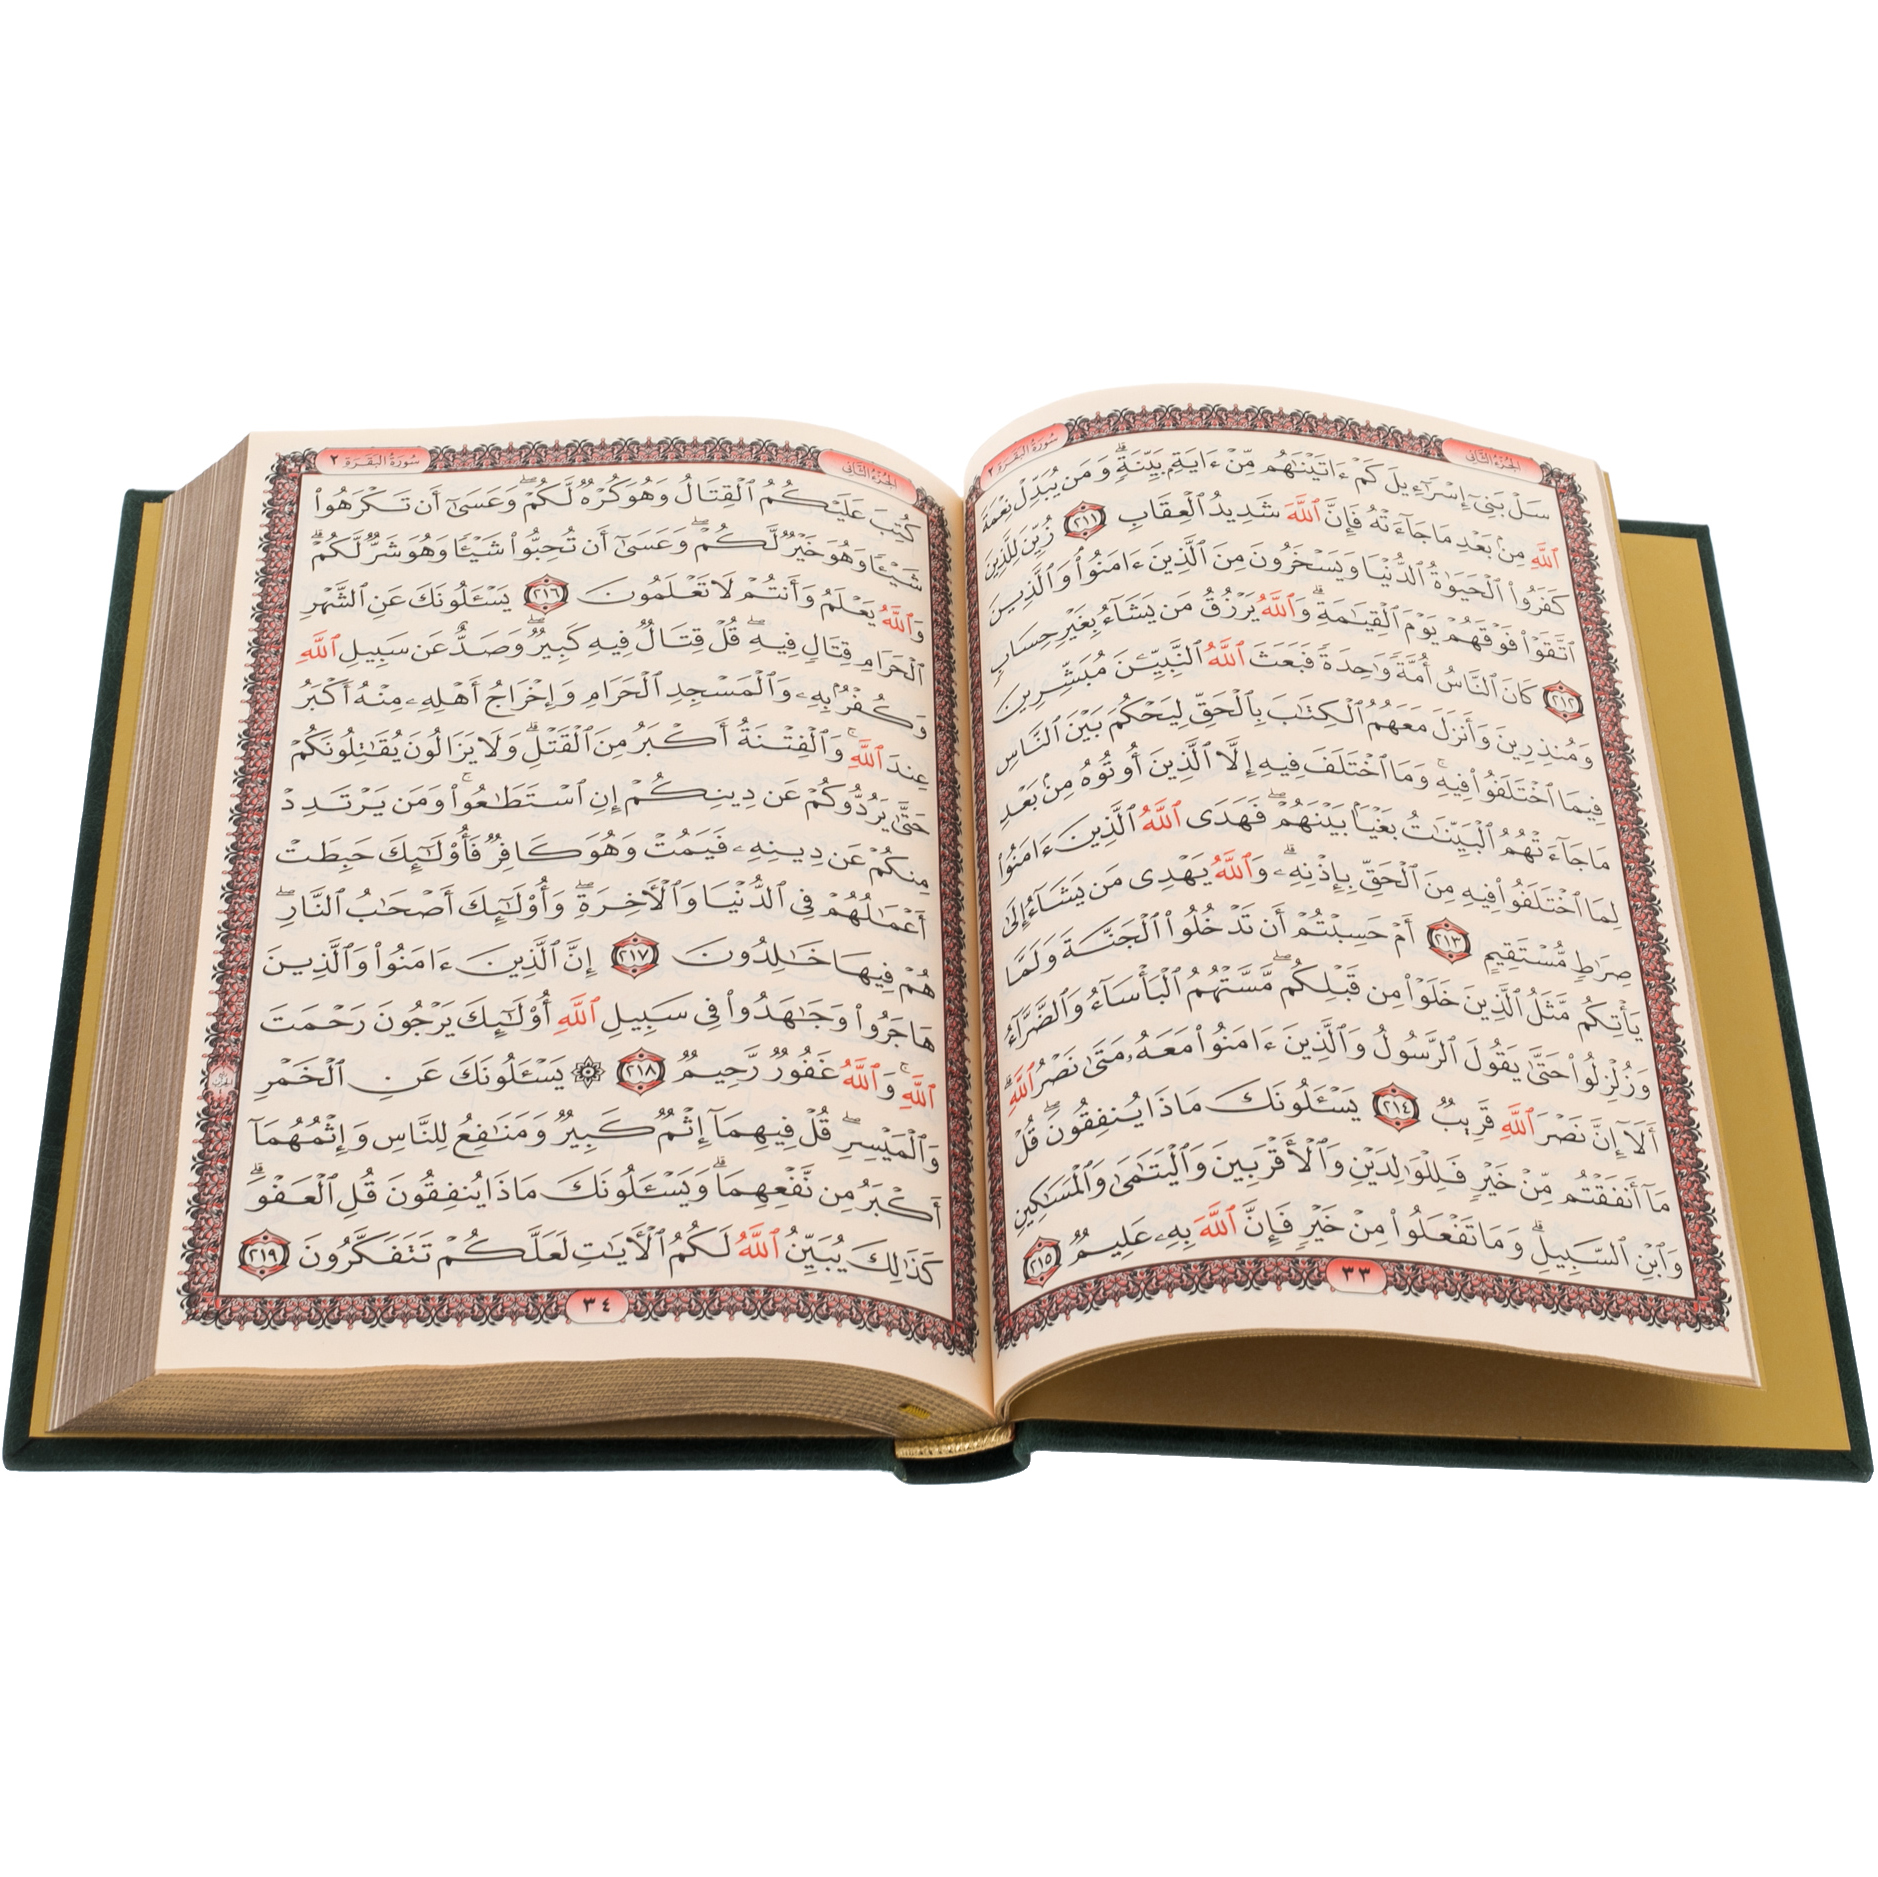 سُورَةُ البَقَرَةِ ٢
الجُزءُ الثَّانِي
سَلْ بَنِيٓ إِسْرَٰٓءِيلَ كَمْ ءَاتَيْنَٰهُم مِّنْ ءَايَةٍۭ بَيِّنَةٍۗ وَمَن يُبَدِّلْ نِعْمَةَ
ٱللَّهِ مِنۢ بَعْدِ مَا جَآءَتْهُ فَإِنَّ ٱللَّهَ شَدِيدُ ٱلْعِقَابِ ٢١١ زُيِّنَ لِلَّذِينَ
كَفَرُوا۟ ٱلْحَيَوٰةُ ٱلدُّنْيَا وَيَسْخَرُونَ مِنَ ٱلَّذِينَ ءَامَنُوا۟ۘ وَٱلَّذِينَ
ٱتَّقَوْا۟ فَوْقَهُمْ يَوْمَ ٱلْقِيَٰمَةِۗ وَٱللَّهُ يَرْزُقُ مَن يَشَآءُ بِغَيْرِ حِسَابٍ
٢١٢ كَانَ ٱلنَّاسُ أُمَّةً وَٰحِدَةً فَبَعَثَ ٱللَّهُ ٱلنَّبِيِّـۧنَ مُبَشِّرِينَ
وَمُنذِرِينَ وَأَنزَلَ مَعَهُمُ ٱلْكِتَٰبَ بِٱلْحَقِّ لِيَحْكُمَ بَيْنَ ٱلنَّاسِ
فِيمَا ٱخْتَلَفُوا۟ فِيهِۚ وَمَا ٱخْتَلَفَ فِيهِ إِلَّا ٱلَّذِينَ أُوتُوهُ مِنۢ بَعْدِ
مَا جَآءَتْهُمُ ٱلْبَيِّنَٰتُ بَغْيًۢا بَيْنَهُمْۖ فَهَدَى ٱللَّهُ ٱلَّذِينَ ءَامَنُوا۟
لِمَا ٱخْتَلَفُوا۟ فِيهِ مِنَ ٱلْحَقِّ بِإِذْنِهِۦۗ وَٱللَّهُ يَهْدِى مَن يَشَآءُ إِلَىٰ
صِرَٰطٍ مُّسْتَقِيمٍ ٢١٣ أَمْ حَسِبْتُمْ أَن تَدْخُلُوا۟ ٱلْجَنَّةَ وَلَمَّا
يَأْتِكُم مَّثَلُ ٱلَّذِينَ خَلَوْا۟ مِن قَبْلِكُمۖ مَّسَّتْهُمُ ٱلْبَأْسَآءُ وَٱلضَّرَّآءُ
وَزُلْزِلُوا۟ حَتَّىٰ يَقُولَ ٱلرَّسُولُ وَٱلَّذِينَ ءَامَنُوا۟ مَعَهُۥ مَتَىٰ نَصْرُ ٱللَّهِۗ
أَلَآ إِنَّ نَصْرَ ٱللَّهِ قَرِيبٌ ٢١٤ يَسْـَٔلُونَكَ مَاذَا يُنفِقُونَۖ قُلْ
مَآ أَنفَقْتُم مِّنْ خَيْرٍ فَلِلْوَٰلِدَيْنِ وَٱلْأَقْرَبِينَ وَٱلْيَتَٰمَىٰ وَٱلْمَسَٰكِينِ
وَٱبْنِ ٱلسَّبِيلِۗ وَمَا تَفْعَلُوا۟ مِنْ خَيْرٍ فَإِنَّ ٱللَّهَ بِهِۦ عَلِيمٌ ٢١٥
٣٣
سُورَةُ البَقَرَةِ ٢
الجُزءُ الثَّانِي
كُتِبَ عَلَيْكُمُ ٱلْقِتَالُ وَهُوَ كُرْهٌ لَّكُمْۖ وَعَسَىٰٓ أَن تَكْرَهُوا۟
شَيْـًٔا وَهُوَ خَيْرٌ لَّكُمْۖ وَعَسَىٰٓ أَن تُحِبُّوا۟ شَيْـًٔا وَهُوَ شَرٌّ لَّكُمْۗ
وَٱللَّهُ يَعْلَمُ وَأَنتُمْ لَا تَعْلَمُونَ ٢١٦ يَسْـَٔلُونَكَ عَنِ ٱلشَّهْرِ
ٱلْحَرَامِ قِتَالٍ فِيهِۖ قُلْ قِتَالٌ فِيهِ كَبِيرٌۖ وَصَدٌّ عَن سَبِيلِ ٱللَّهِ
وَكُفْرٌۢ بِهِۦ وَٱلْمَسْجِدِ ٱلْحَرَامِ وَإِخْرَاجُ أَهْلِهِۦ مِنْهُ أَكْبَرُ
عِندَ ٱللَّهِۚ وَٱلْفِتْنَةُ أَكْبَرُ مِنَ ٱلْقَتْلِۗ وَلَا يَزَالُونَ يُقَٰتِلُونَكُمْ
حَتَّىٰ يَرُدُّوكُمْ عَن دِينِكُمْ إِنِ ٱسْتَطَٰعُوا۟ۚ وَمَن يَرْتَدِدْ
مِنكُمْ عَن دِينِهِۦ فَيَمُتْ وَهُوَ كَافِرٌ فَأُو۟لَٰٓئِكَ حَبِطَتْ
أَعْمَٰلُهُمْ فِى ٱلدُّنْيَا وَٱلْأَخِرَةِۖ وَأُو۟لَٰٓئِكَ أَصْحَٰبُ ٱلنَّارِۖ
هُمْ فِيهَا خَٰلِدُونَ ٢١٧ إِنَّ ٱلَّذِينَ ءَامَنُوا۟ وَٱلَّذِينَ
هَاجَرُوا۟ وَجَٰهَدُوا۟ فِى سَبِيلِ ٱللَّهِ أُو۟لَٰٓئِكَ يَرْجُونَ رَحْمَتَ
ٱللَّهِۚ وَٱللَّهُ غَفُورٌ رَّحِيمٌ ٢١٨ ۞ يَسْـَٔلُونَكَ عَنِ ٱلْخَمْرِ
وَٱلْمَيْسِرِۖ قُلْ فِيهِمَآ إِثْمٌ كَبِيرٌ وَمَنَٰفِعُ لِلنَّاسِ وَإِثْمُهُمَآ
أَكْبَرُ مِن نَّفْعِهِمَاۗ وَيَسْـَٔلُونَكَ مَاذَا يُنفِقُونَ قُلِ ٱلْعَفْوَۗ
كَذَٰلِكَ يُبَيِّنُ ٱللَّهُ لَكُمُ ٱلْأَيَٰتِ لَعَلَّكُمْ تَتَفَكَّرُونَ ٢١٩
٣٤